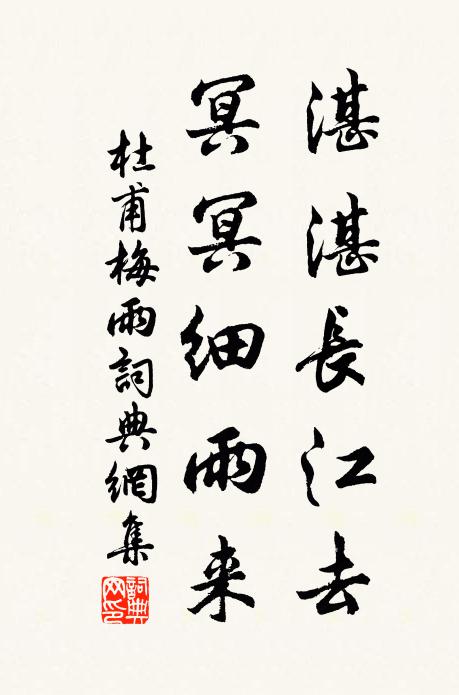 湛湛長江去
冥冥细雨来
杜甫梅雨詞典網集
詞典網印